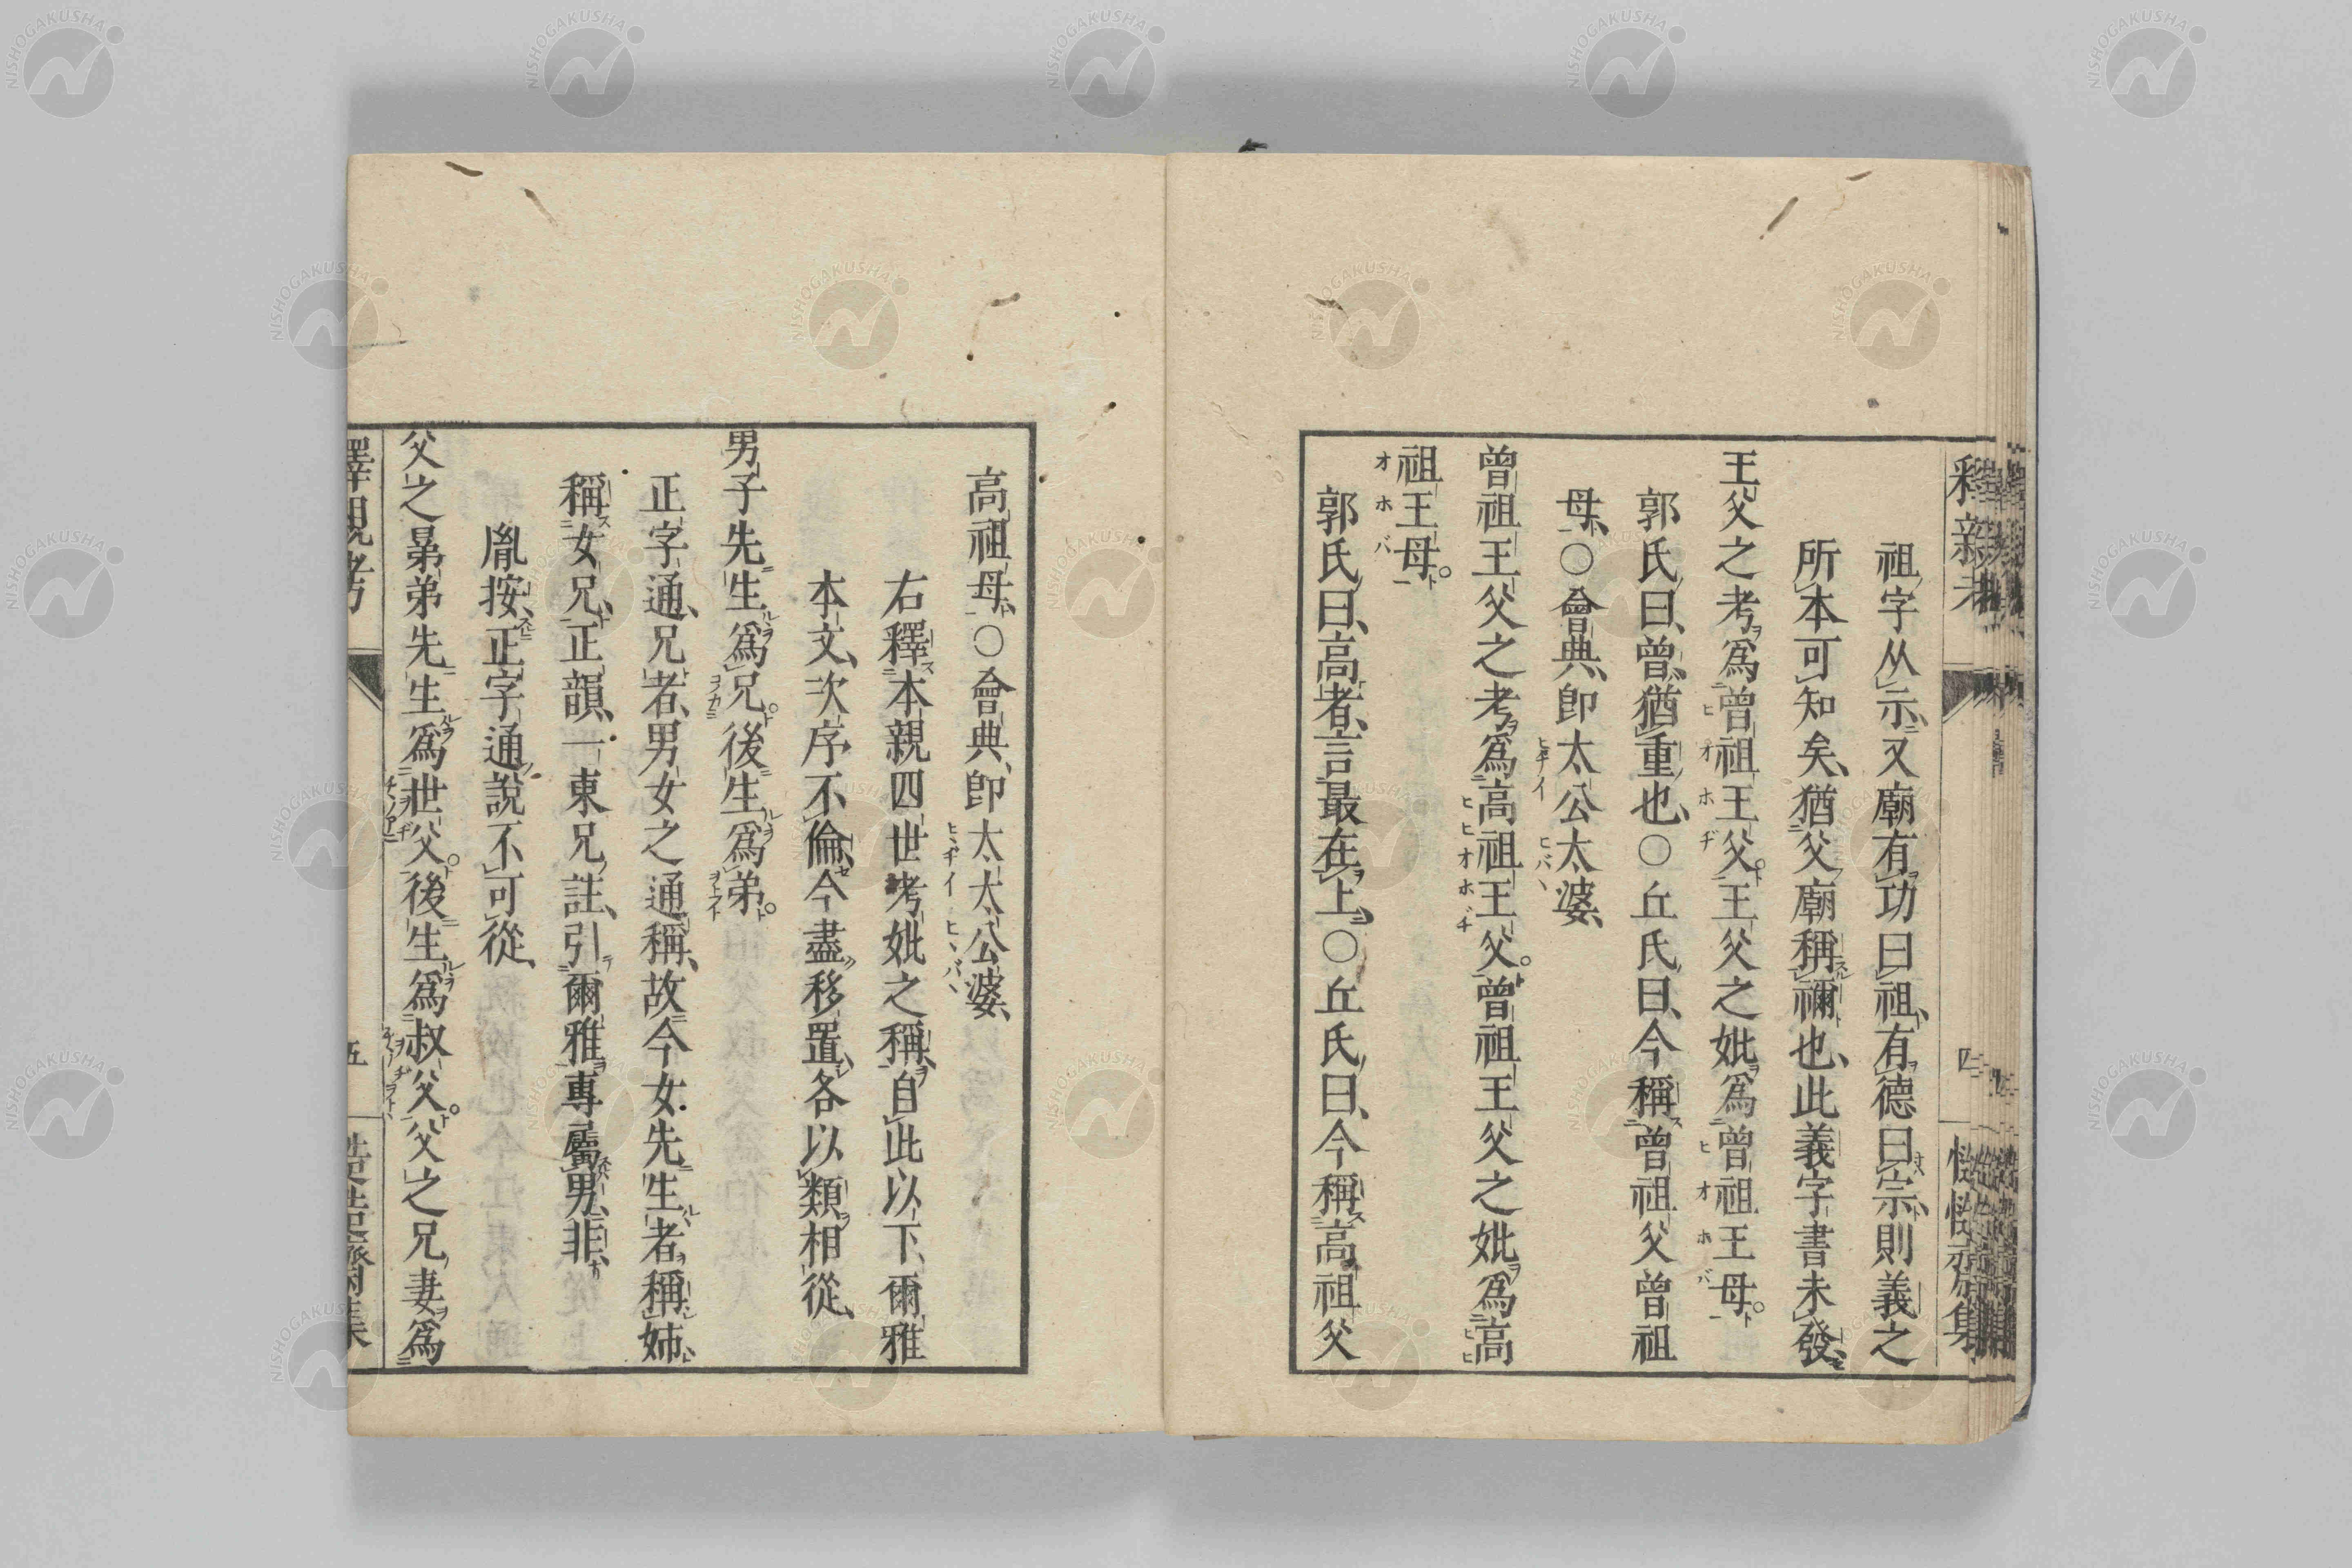 祖字从示又廟有功曰祖有德曰宗則義之
所本可知矣猶父廟稱禰也此義字書未發
王父之考爲曾祖王父王父之妣爲曾祖王母
郭氏曰曾猶重也○丘氏曰今稱曾祖父曾祖
母○會典即太公太婆
曾祖王父之考爲高祖王父曾祖王父之妣爲高
祖王母
郭氏曰高者言最在上○丘氏曰今稱高祖父
高祖母○會典即太太公婆
右釋本親四世考妣之稱自此以下爾雅
本文次序不倫今盡移置各以類相從
男子先生爲兄後生爲弟
正字通兄者男女之通稱故今女先生者稱姉
稱女兄正韻一東兄註引爾雅專屬男非
胤按正字通說不可從
父之晜弟先生爲世父後生爲叔父父之兄妻爲
釋親考
五
NISHOGAKUSHA